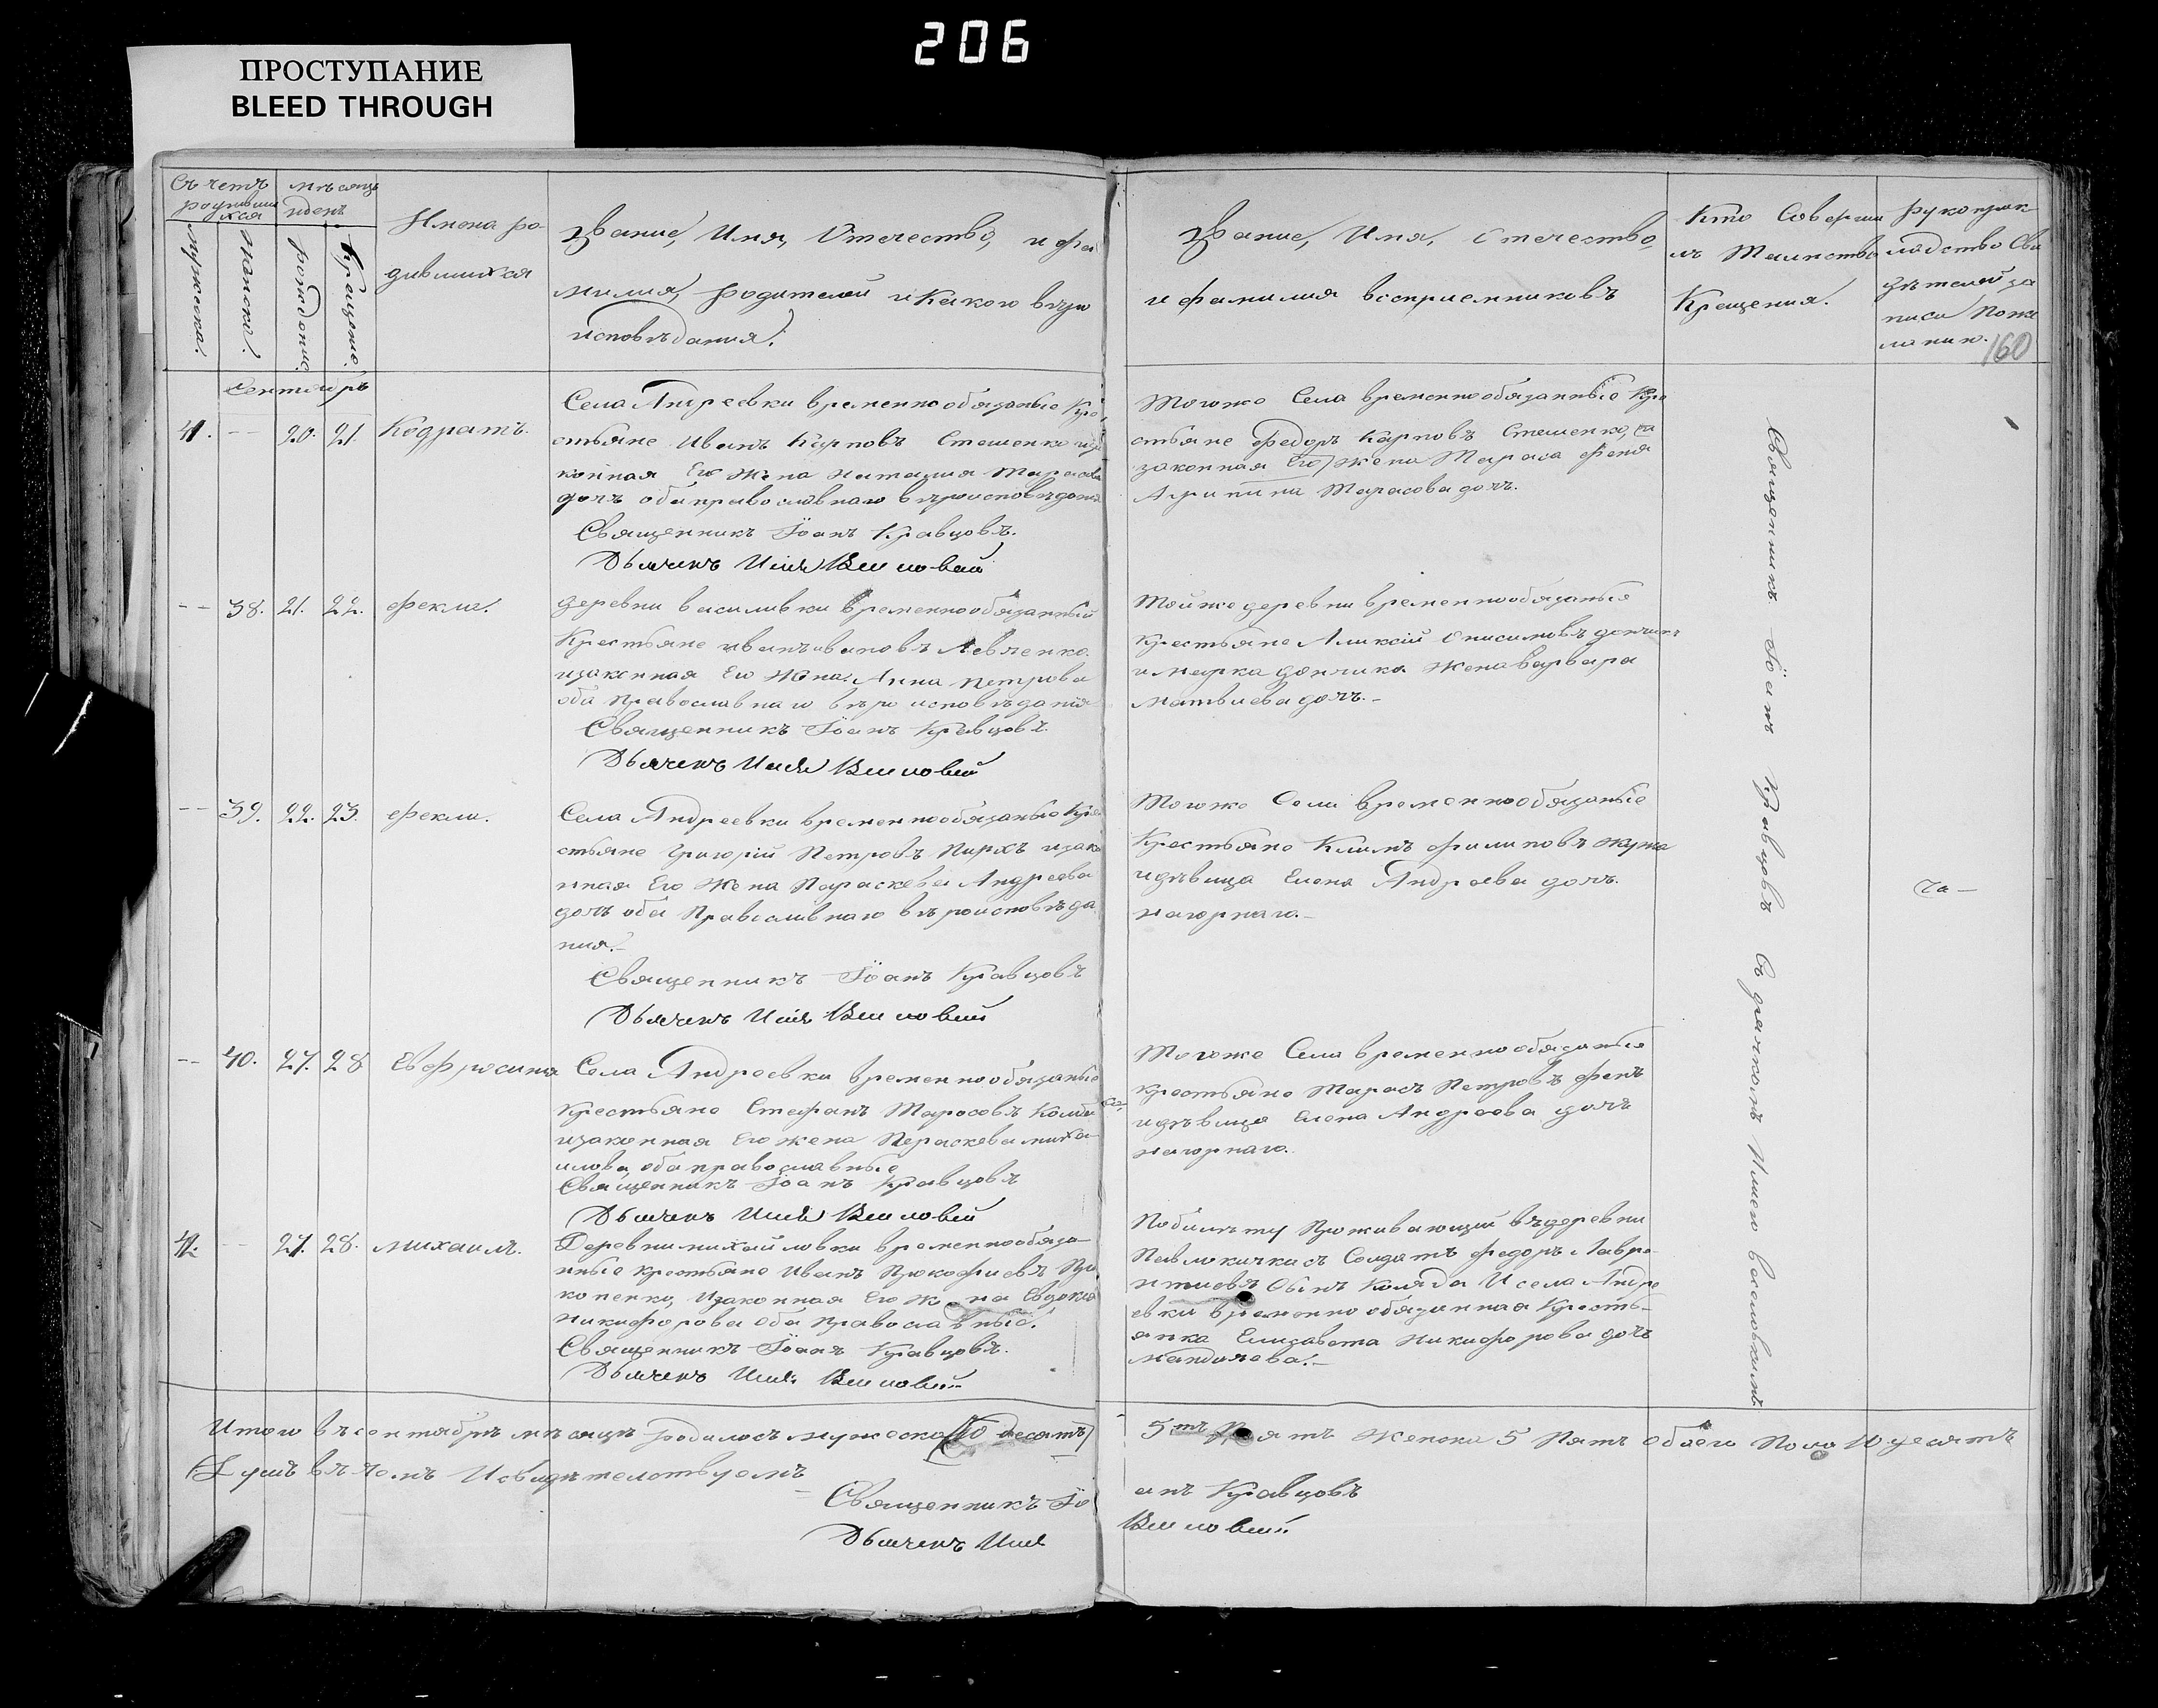 206
ПРОСТУПАНИЕ
BLEED THROUGH
Счетъ родившихся
мѣсяцъ и день
Имена ро-
дившихся
Звание, Имя, Отчество, и фа
милия, родителей и Какого вѣро
исповѣдания.
мужеска.
женска.
рождение.
крещение.
Звание, Имя, Отечество,
и фамилия восприемниковъ
Кто Соверши
лъ Таинство
Крещения.
рукоприк
ладство Сви
дѣтелей за
писи Поже
ланию.
160
Сентябрь
41. -- 20. 21. Кодратъ.
Села Андреевки временнообязанные Кре
стьяне Иванъ Карповъ Стешенко иза
конная Его Жена Наталия Тарасова
дочь оба православнаго вѣроисповѣдания
Священникъ Іоанъ Кравцовъ.
Дьячекъ Илія
Тогоже Села временнообязанные Кре
стьяне Федоръ Карповъ Стешенко,
законная Его Жена Тараса Феня
Агрипина Тарасова дочь.
-- 38. 21. 22. Фекла.
деревни василивки временнообязанный
Крестьяне иванъ ивановъ Левченко
изаконная Его Жена Анна Петрова
оба Православнаго вѣро исповѣдания
Священникъ Іоанъ Кравцовъ.
Дьячекъ Илія
Тойже деревни временнообязаные
Крестьяне Аликсій Онисимовъ дончикъ
и Марка дончика Жена варвара
Матвиева дочь.-
-- 39. 22. 23. Фекла.
Села Андреевки временнообязаные Кре
стьяне Григорій Петровъ Пирхъ изако
нная Его Жена Параскева Андреева
дочь оба Православнаго вѣроисповѣда
ния.-
Священникъ Іоанъ Кравцовъ
Дьячекъ Илія
Тогоже Села временнообязаные
Крестьяне Климъ Филиповъ
идѣвица Елена Андреева дочь
нагорнаго.-
-- 40. 27. 28 Евфросиния
Села Андреевки временнообязаные
Крестьяне Стефанъ Таросовъ
изаконная Его жена Параскева миха-
илова, оба православные
Священникъ Іоанъ Кравцовъ
Дьячекъ Илія
Тогоже Села временнообязаные
крестьяне Тарасъ Петровъ Фень
идѣвица Елена Андреева дочь
нагорнаго.
42. -- 27. 28. михаилъ.
Деревни михайловки временнообяза-
нные крестьяне Иванъ Прокофиевъ Про
копенко, Изаконная Его Жена Евдокия
никифорова оба Православные.
Священникъ Іоанъ Кравцовъ.
Дьячекъ Илія
Побилѣту Проживающий въ деревни
Солдатъ Федоръ Лавре
нтиевъ Сынъ Коляда И села Андре
евки временно обязанная Кресть-
янка Елизавета Никифорова дочь
Священникъ Іоанъ Кравцовъ Съ дьячкомъ Илиею
Итого въ сентябрѣ мѣсяцѣ родилось мужеска (10 десять)
5ть Пять Женска 5 Пять обоего Пола 10 десять
Душъ въ чемъ Исвидѣтелствуемъ
Священникъ Іоанъ Кравцовъ
Дьячекъ Илія